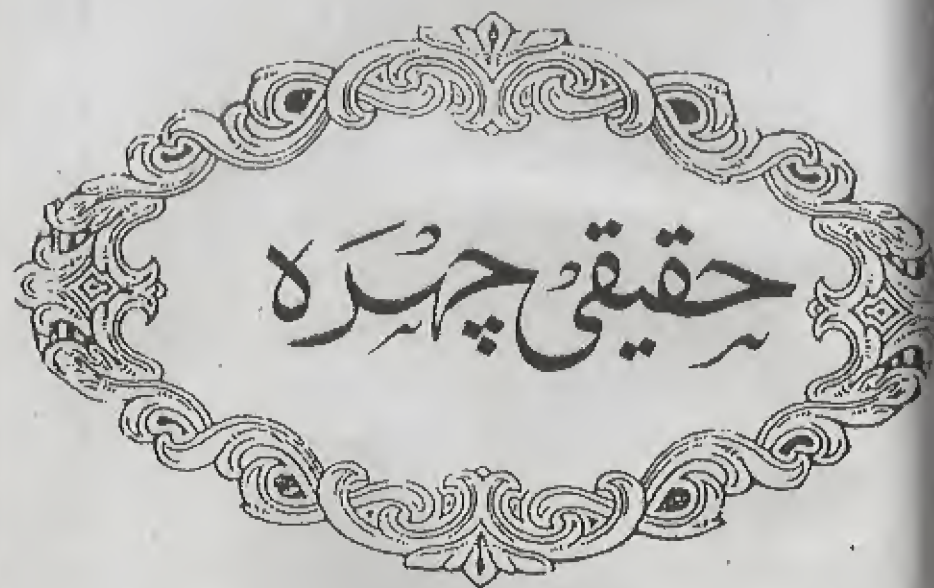 حقیقی چہرہ